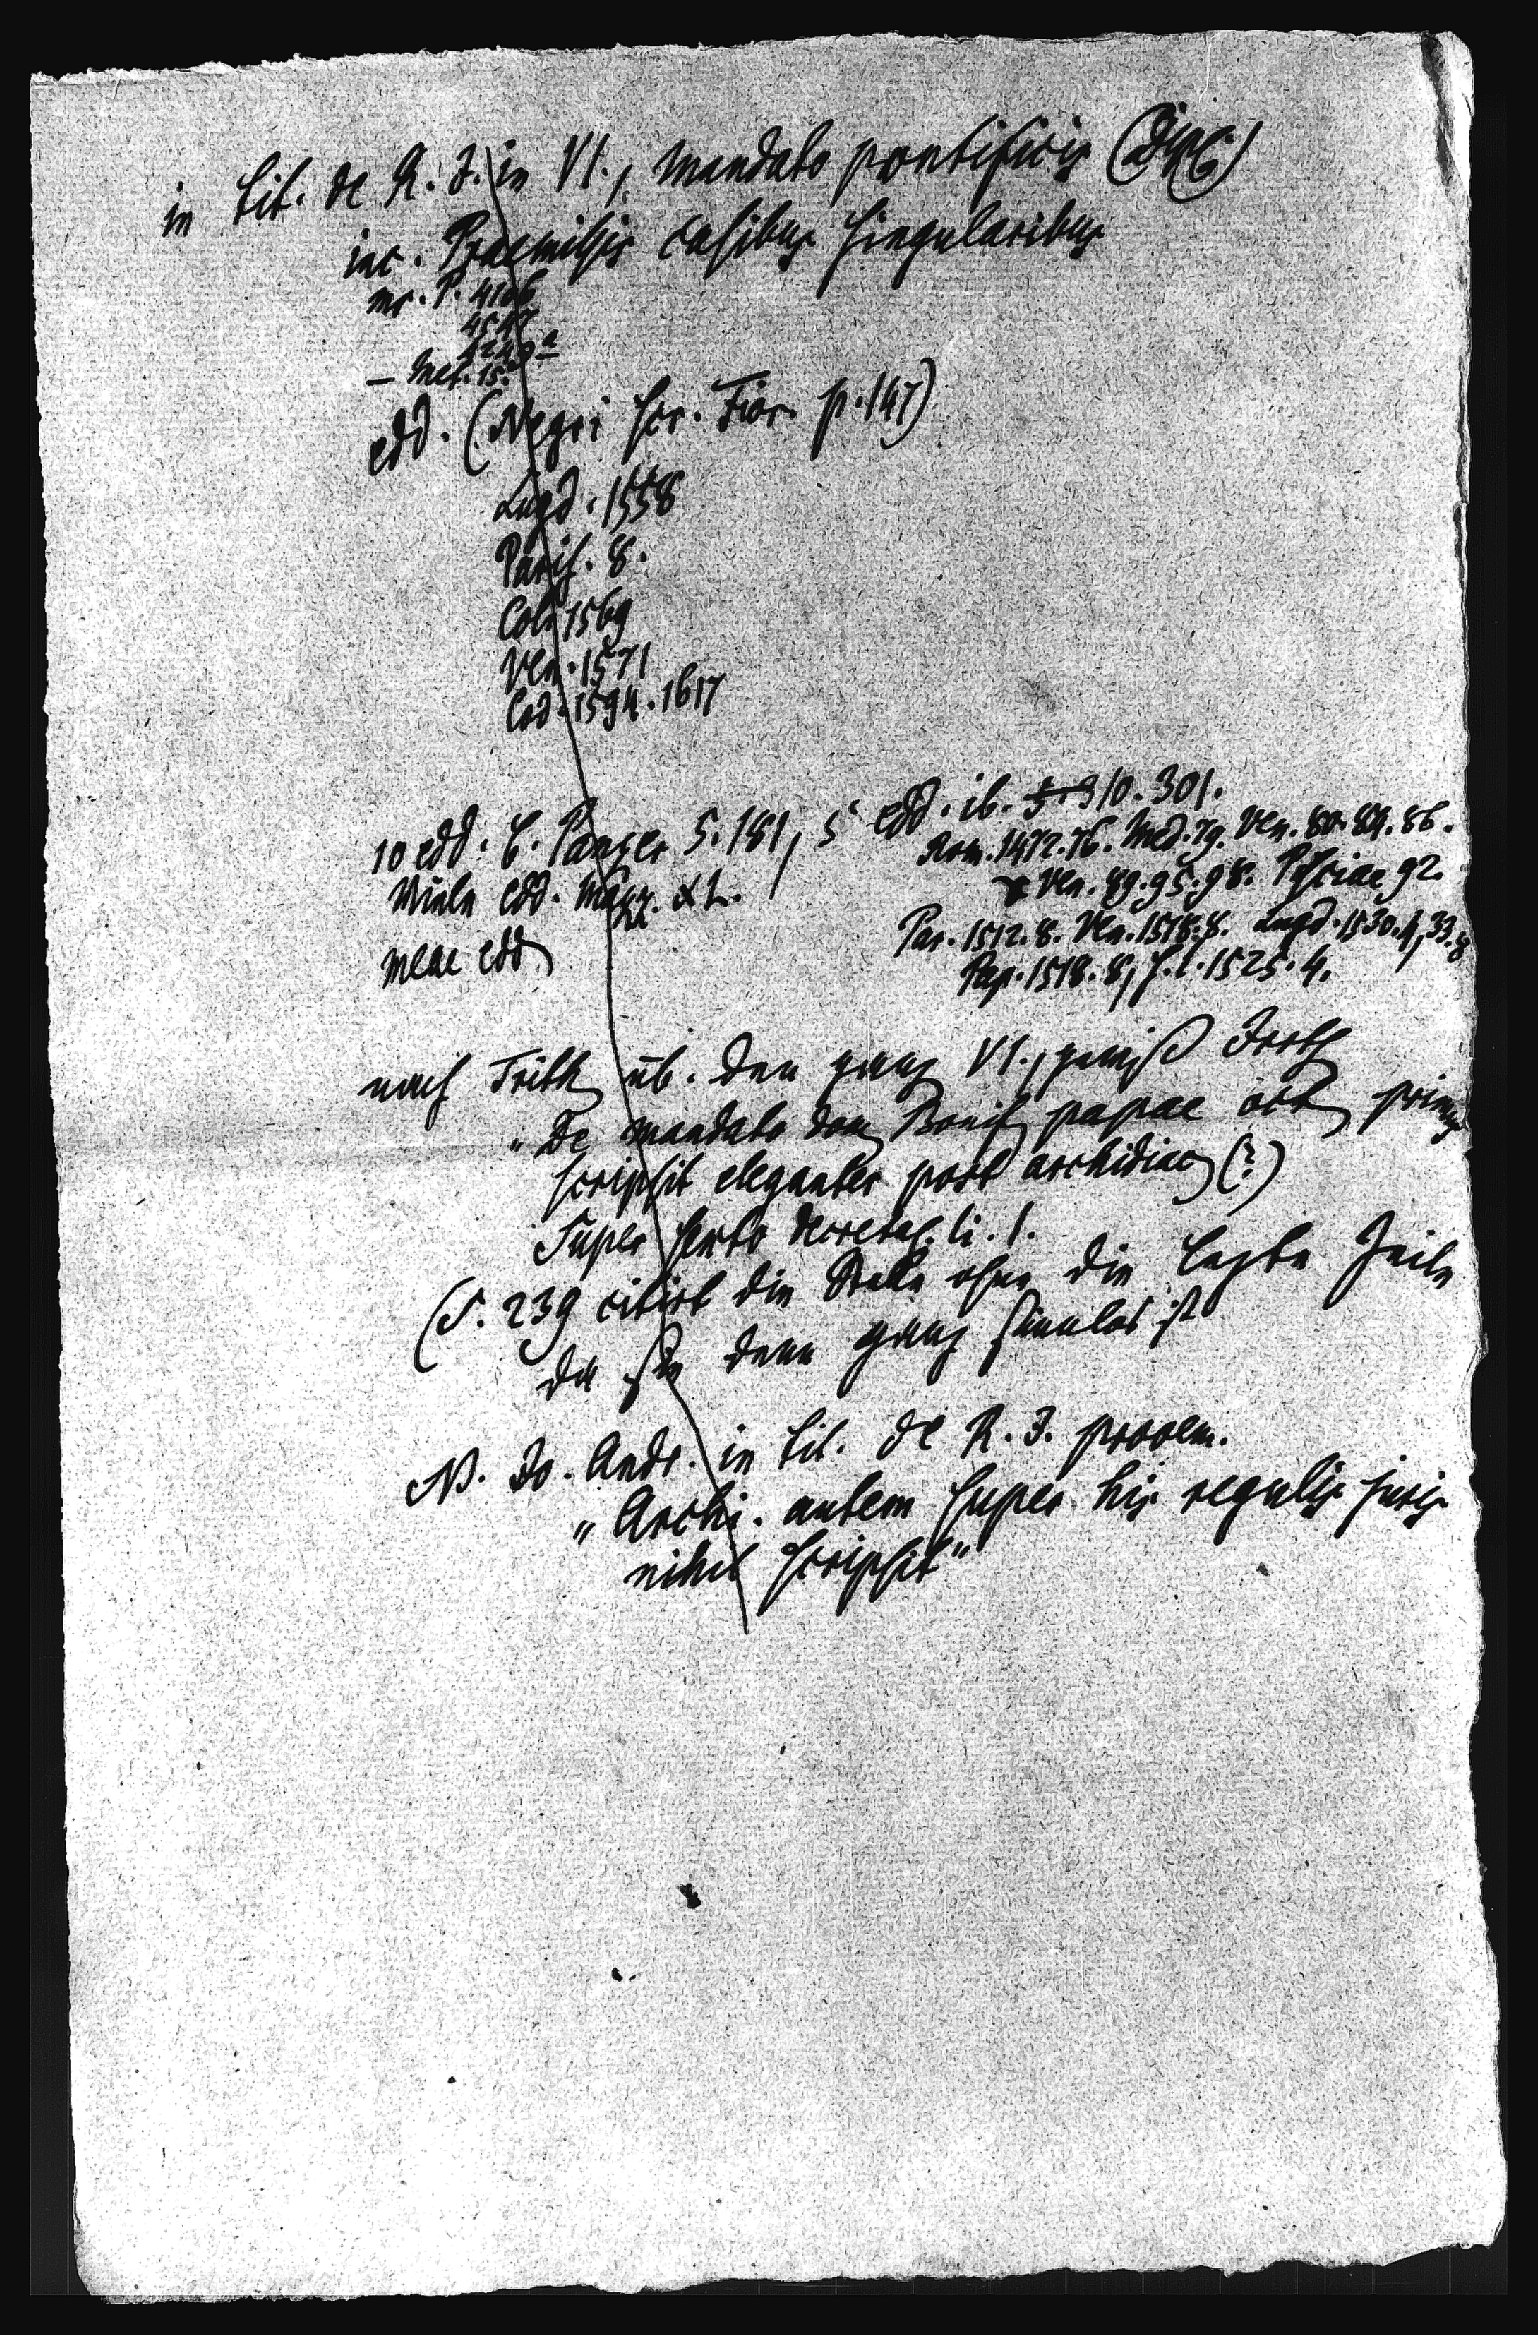 in tit. de R. J. in VI., mandato pontificis (Dinus)
inc. Praemissis casibus singularibus
ms. P. 4106
4547
— Met. 15.
edd. (Negri scr. Fior. p. 147)
Lugd. 1558
Paris. 8.
Col. 1569
Ven. 1571
1594. 1617
10 edd. b. Panzer 5. 181, 5 edd. ib. 10. 301.
Rom. 1472. 76. Med. 79. Ven. 80. 84. 86.
Ven. 89. 95. 98. Papiae 92.
Viele edd. &L.
Par. 1512. 8. Ven. 1518. 8. Lugd. 1530. 4, 33. 8
meae edd.
Pap. 1518. 8, s. l. 1525. 4.
nach Trith. üb. den ganz VI., gewiß Irrth
"De mandato dom Bonif papae oct primus
scripsit eleganter post archidiac (?)
Super sexto decretal. li. 1.
(S. 239 citirt die Stelle ohne die letzte Zeile
da sie denn ganz sinnlos ist
NB. Jo. Andr. in tit. de R. J. prooem.
"Archi. autem super his regulis juris
nihil scripsit"